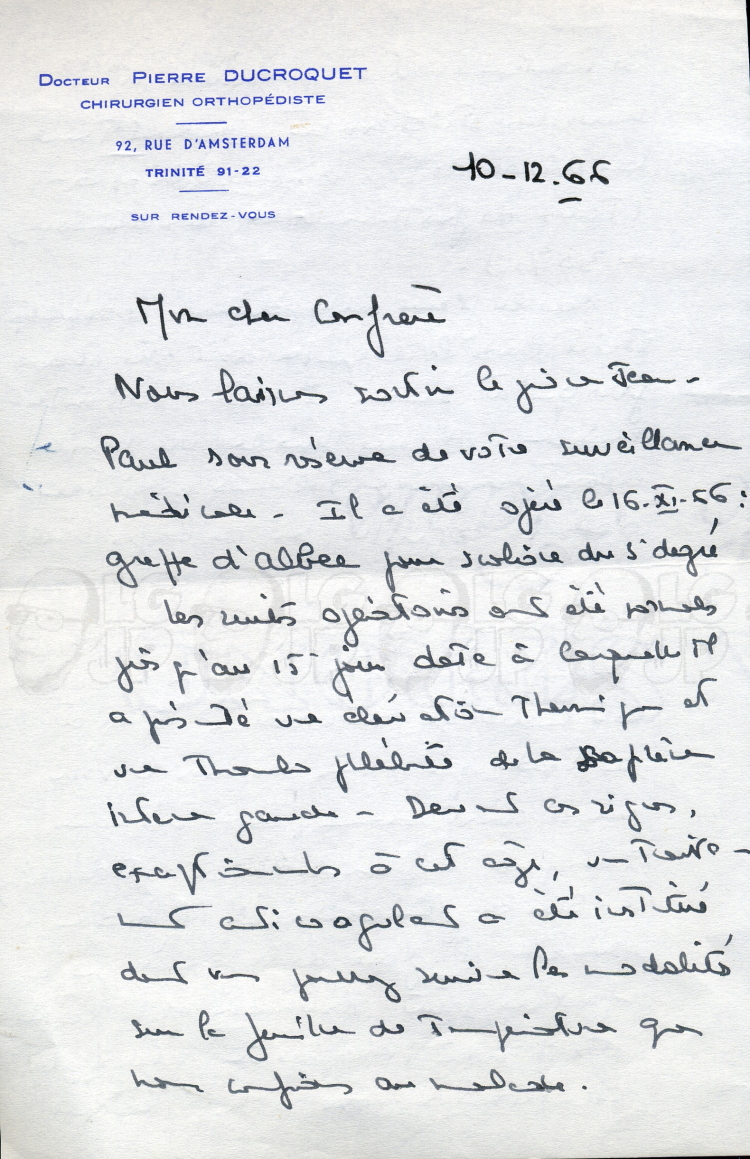 DOCTEUR PIERRE DUCROQUET
CHIRURGIEN ORTHOPÉDISTE
92, RUE D'AMSTERDAM
TRINITÉ 91-22
SUR RENDEZ-VOUS
10-12.66
Mon cher Confrère
Nous laissons sortir le jeune Jean-
Paul sous réserve de votre surveillance
médicale - Il a été opéré le 16-XI-66:
greffe d'Albee pour scoliose du 3° degré
Les suites opératoires ont été normales
jusqu'au 15° jour date à laquelle il
a présenté une élévation Thermique et
une Thrombophlébite de la Saphène
interne gauche - Devant ces signes,
exceptionnels à cet âge, un Traite-
ment anticoagulant a été institué
dont vous pourrez suivre les modalités
sur la feuille de Température que
nous confions au malade.
LGJP
LGJP
LGJP
LGJP